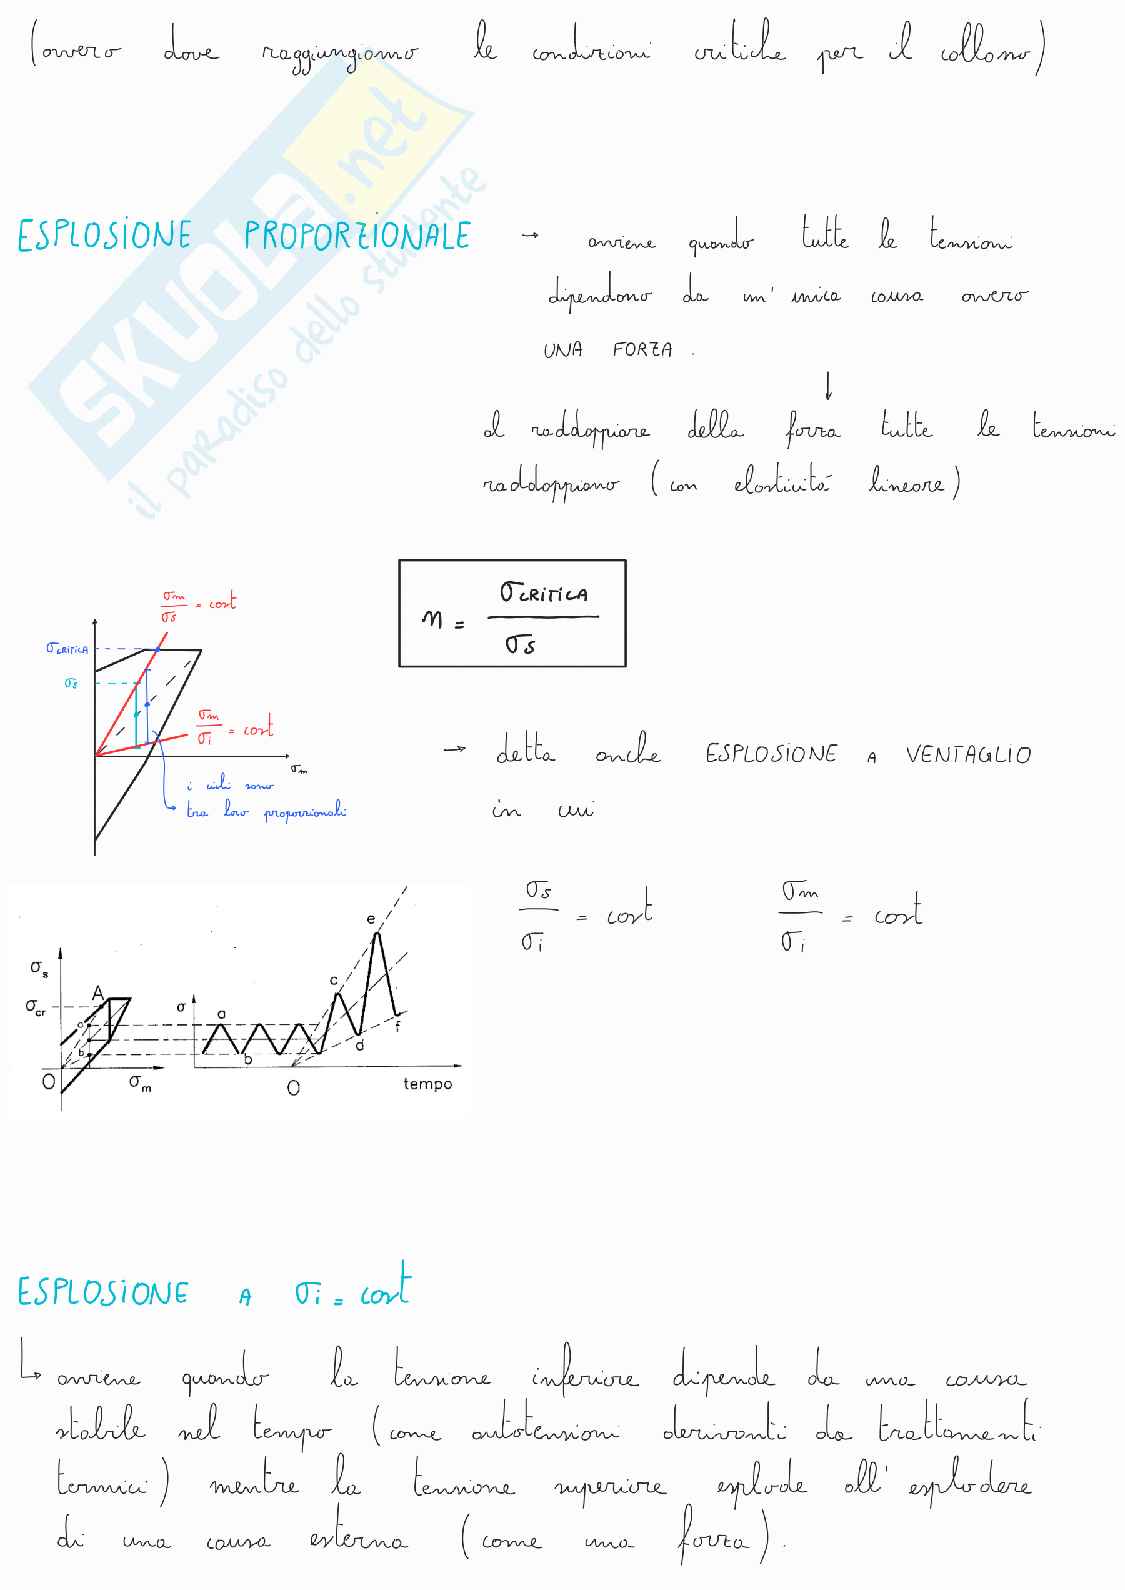 (ovvero dove raggiungiamo le condizioni critiche per il collasso)
SKUOLA.net
il paradiso dello studente
ESPLOSIONE PROPORZIONALE → avviene quando tutte le tensioni
dipendono da un' unica causa ovvero
UNA FORZA.
↓
al raddoppiare della forza tutte le tensioni
raddoppiano (con elasticitá lineare)
σm/σs = cost
σCRITICA
σs
σm/σi = cost
σm
i cicli sono
tra loro proporzionali
n = σCRITICA/σs
→ detta anche ESPLOSIONE A VENTAGLIO
in cui
σs/σi = cost σm/σi = cost
σs
A
σcr
a
b
O
σm
σ
a
b
c
d
e
f
O
tempo
ESPLOSIONE A σi = cost
↳ avviene quando la tensione inferiore dipende da una causa
stabile nel tempo (come autotensioni derivanti da trattamenti
termici) mentre la tensione superiore esplode all' esplodere
di una causa esterna (come una forza).